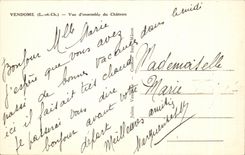 VENDOME (L.-et-Ch.) — Vue d'ensemble du Château
Bonjour Mlle Marie
j'espère que vous avez
passé de bonne vacances dans le midi
ici il faisait très chaud
Je viendrai vous dire
bonjour avant votre
départ
Meilleures amitiés
Marguerite
Mademoiselle
Marie